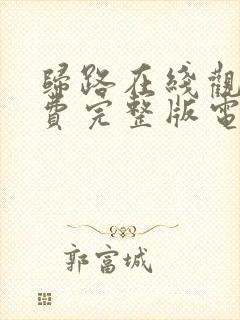 歸路在綫觀
費完整版電
郭富城